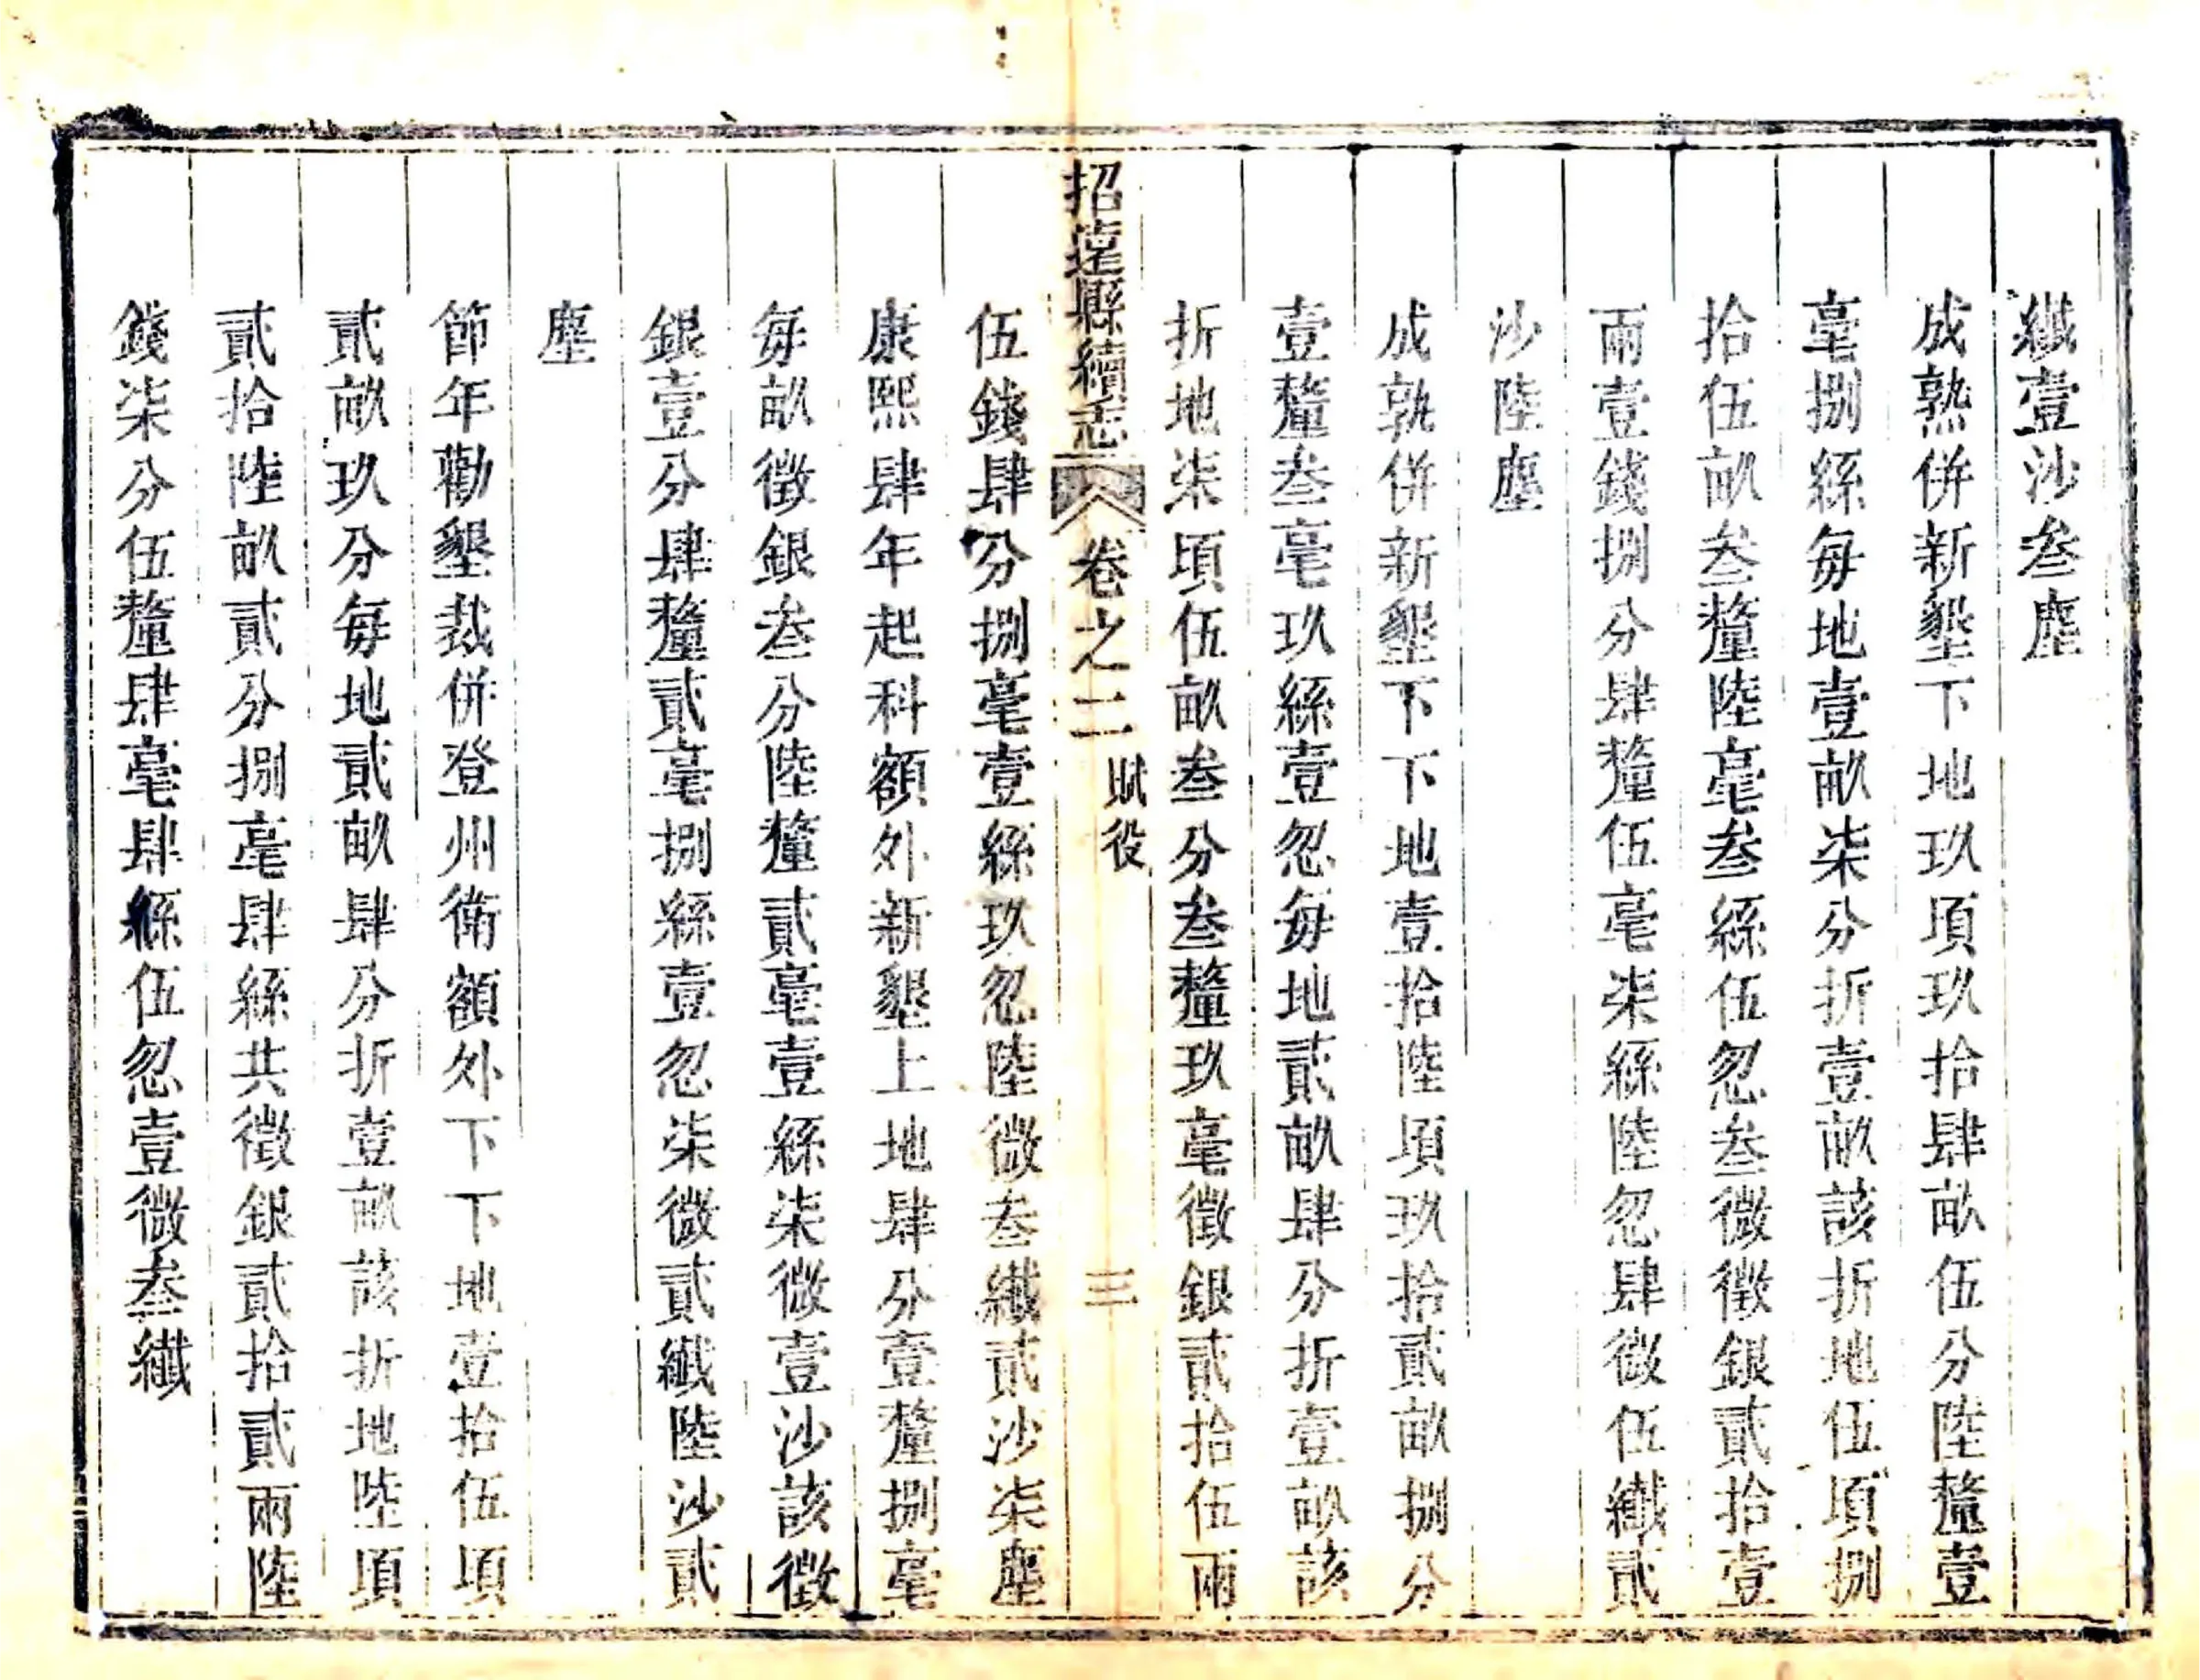 纖壹沙叁塵
成熟併新墾下地玖頃玖拾肆畝伍分陸釐壹
毫捌絲每地壹畝柒分折壹畝該折地伍頃捌
拾伍畝叁釐陸毫叁絲伍忽叁微徵銀貳拾壹
兩壹錢捌分肆釐伍毫柒絲陸忽肆微伍纖貳
沙陸塵
成孰併新墾下下地壹拾陸頃玖拾貳畝捌分
壹釐叁毫玖絲壹忽每地貳畝肆分折壹畝該
折地柒頃伍畝叁分叁釐玖毫徵銀貳拾伍兩
招遠縣續志 卷之二 賦役 三
伍錢肆分捌毫壹絲玖忽陸微叁纖貳沙柒塵
康熙肆年起科額外新墾上地肆分壹釐捌毫
每畝徵銀叁分陸釐貳毫壹絲柒微壹沙該徵
銀壹分肆釐貳毫捌絲壹忽柒微貳纖陸沙貳
塵
節年勸墾裁併登州衛額外下下地壹拾伍頃
貳畝玖分每地貳畝肆分折壹畝該折地陸頃
貳拾陸畝貳分捌毫肆絲共徵銀貳拾貳兩陸
錢柒分伍釐肆毫肆絲伍忽壹微叁纖